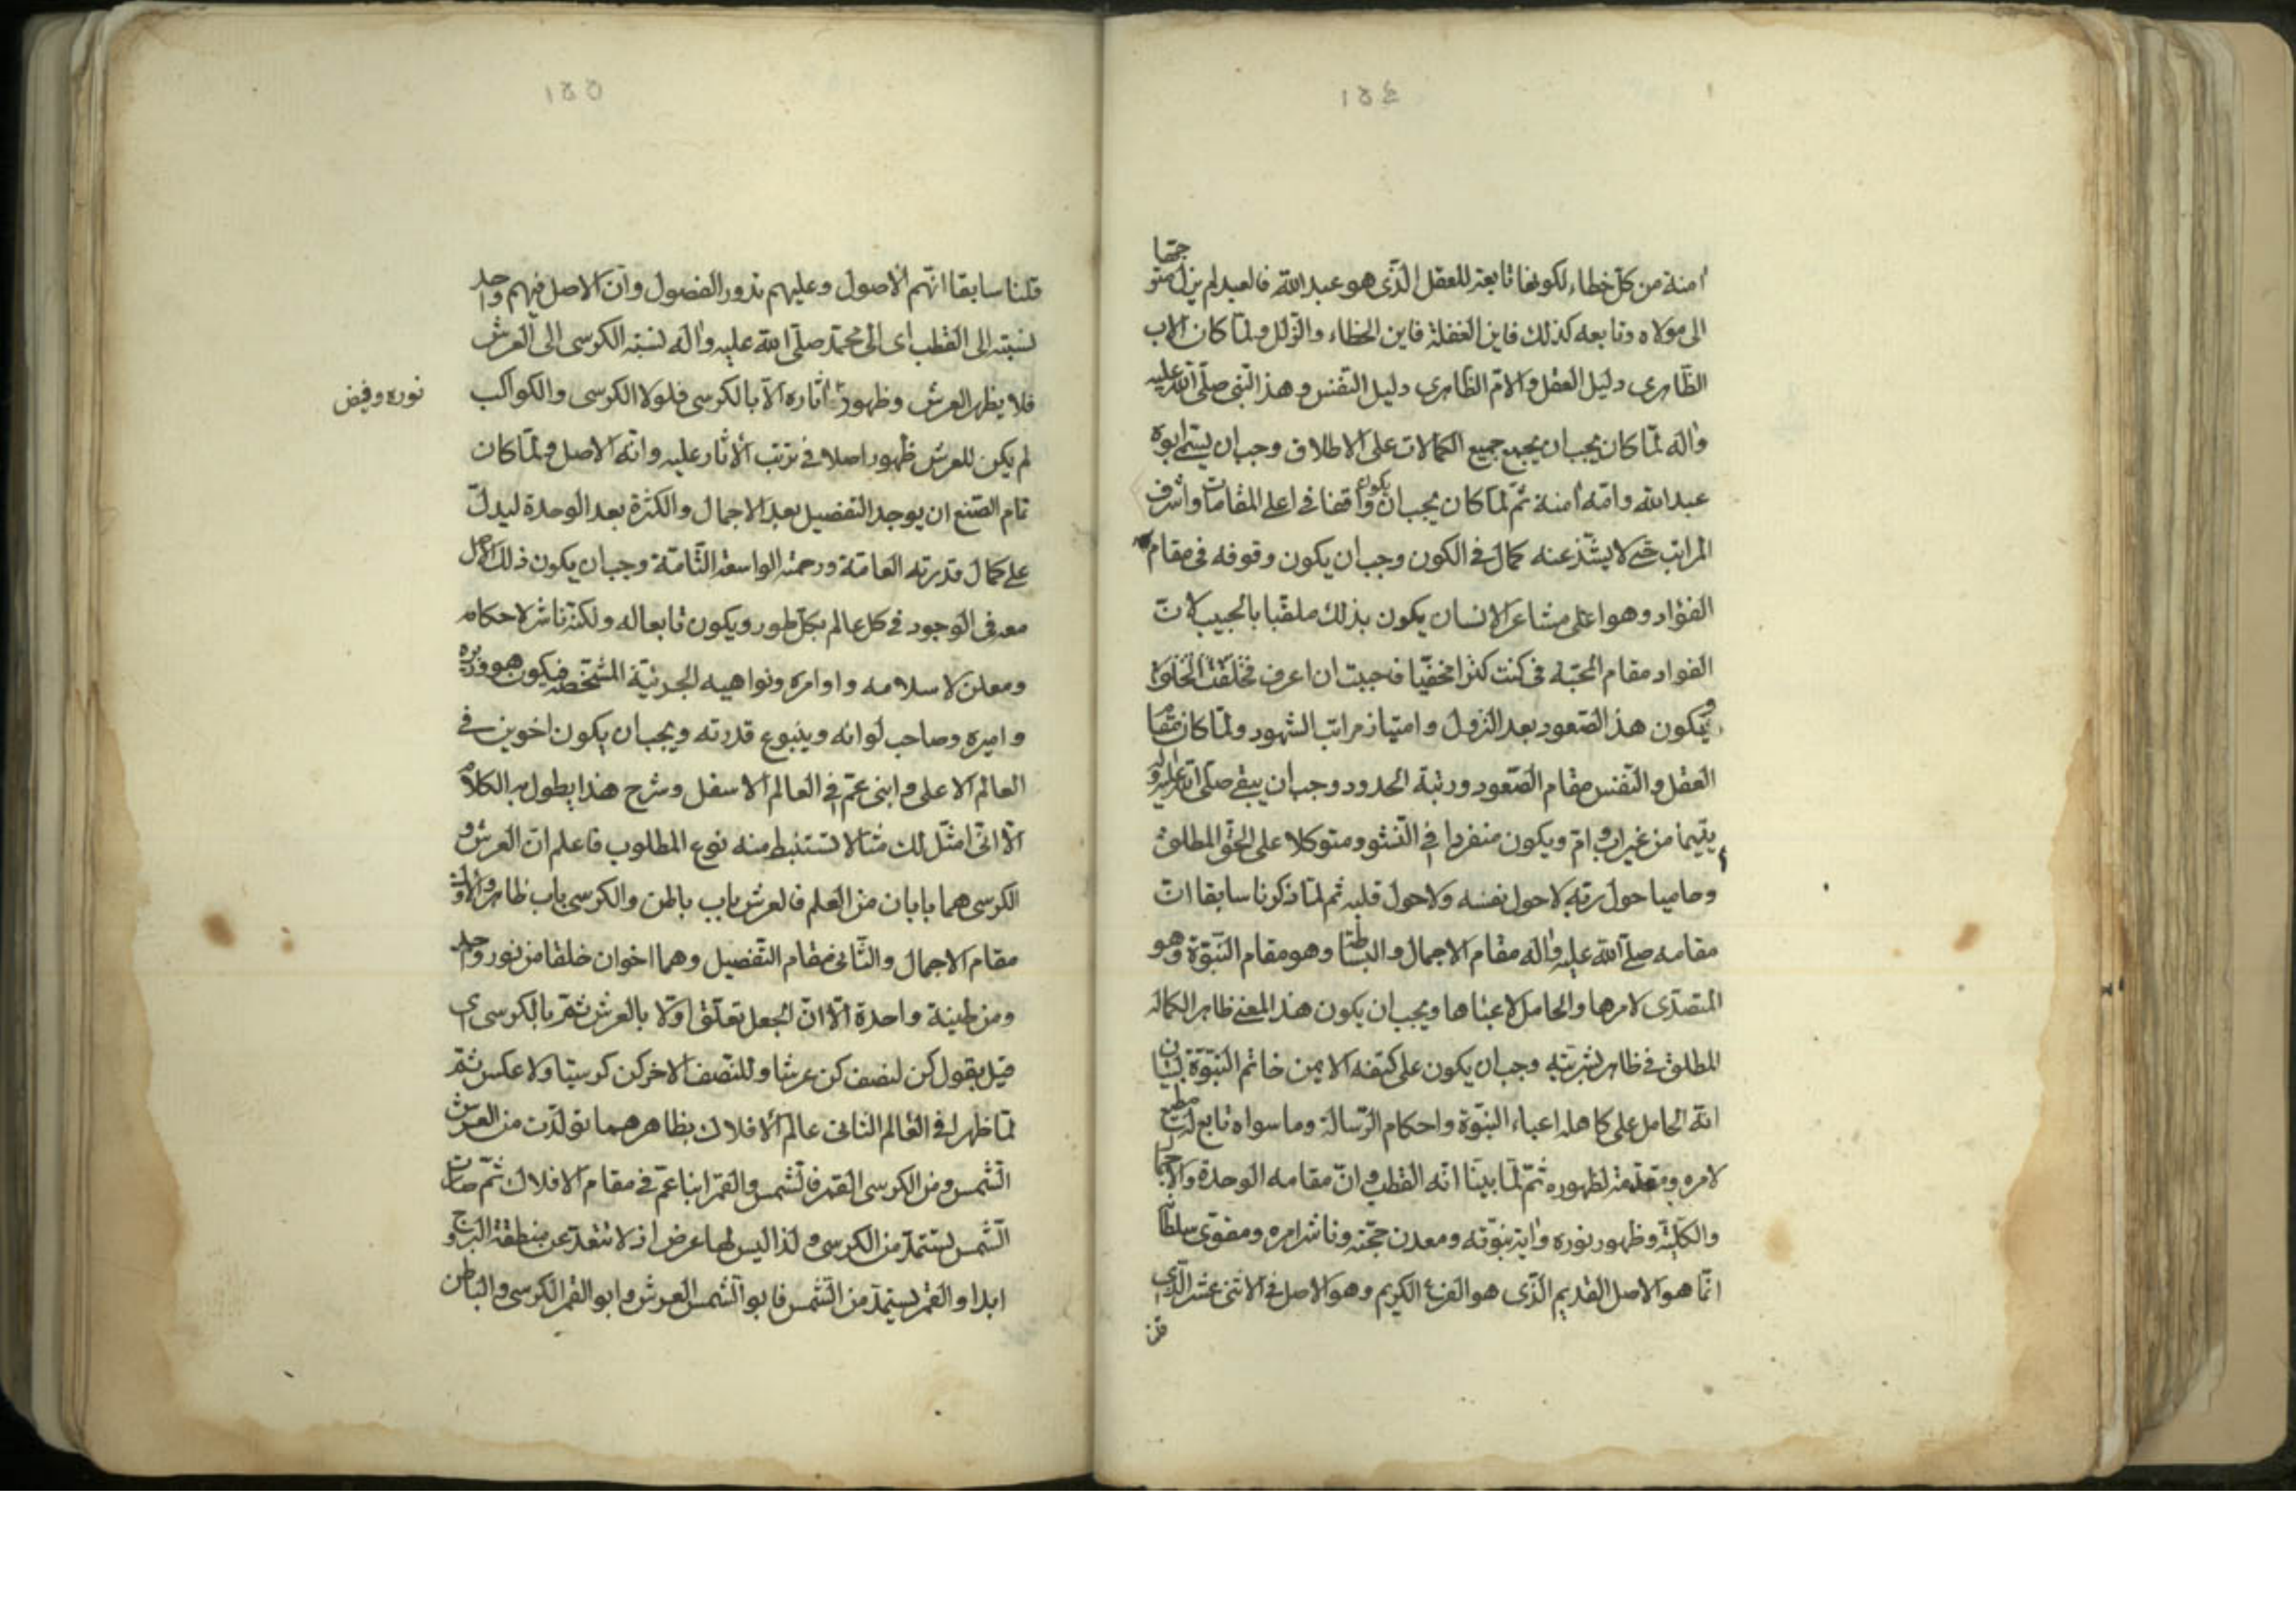 ١٤٤
آمنة من كل خطاء لكونها تابعة للعقل الذى هو عبد الله فالعبد لم يزل متوجها
الى مولاه وتابعه كذلك فاين الغفلة فاين الخطاء والزلل ولما كان الاب
الظاهرى دليل العقل والام الظاهرى دليل النفس وهذا النبى صلى الله عليه
واله لما كان يجب ان يجمع جميع الكمالات على الاطلاق وجب ان يسمى ابوه
عبد الله وامه آمنة ثم لما كان يجب ان يكون واقفا فى اعلى المقامات واشرف
المراتب حتى لا يشذ عنه كمال فى الكون وجب ان يكون وقوفه فى مقام
الفؤاد وهو اعلى مشاعر الانسان يكون بذلك ملقبا بالحبيب لان
الفؤاد مقام المحبة فى كنت كنزا مخفيا فاحببت ان اعرف فخلقت الخلق
ويكون هذا الصعود بعد النزول وامتياز مراتب الشهود ولما كان مقام
العقل والنفس مقام الصعود ورتبة الحدود وجب ان يبقى صلى الله عليه واله
يتيما من غير اب وام ويكون منفردا فى النشو ومتوكلا على الحق المطلق
وحاميا حول ربه لا حول نفسه ولا حول قلبه ثم لما ذكرنا سابقا ان
مقامه صلى الله عليه واله مقام الاجمال والبساطة وهو مقام النبوة وهو
المتصدى لامرها والحامل لاعبائها ويجب ان يكون هذا المعنى ظاهر الكماله
المطلق فى ظاهر بشريته وجب ان يكون على كتفه الايمن خاتم النبوة لبيان
انه الحامل على كاهله اعباء النبوة واحكام الرسالة وما سواه تابع له مطيع
لامره ومقدمة لظهوره ثم لما بينا انه القطب وان مقامه الوحدة والاجمال
والكلية وظهور نوره واية نبوته ومعدن حجته وناشر امره ومقوى سلطانه
انما هو الاصل القديم الذى هو الفرع الكريم وهو الاصل فى الاثنى عشر الذى
قلنا
١٤٥
قلنا سابقا انهم الاصول وعليهم تدور الفصول وان الاصل فيهم واحد
نسبته الى القطب اى الى محمد صلى الله عليه واله نسبة الكرسى الى العرش
فلا يظهر العرش وظهور اثاره الا بالكرسى فلولا الكرسى والكواكب
نوره وفيض
لم يكن للعرش ظهور اصلا فى ترتب الاثار عليه وانه الاصل ولما كان
تمام الصنع ان يوجد التفصيل بعد الاجمال والكثرة بعد الوحدة ليدل
على كمال قدرته العامة ورحمته الواسعة التامة وجب ان يكون ذلك الاصل
معه فى الوجود فى كل عالم بكل طور ويكون تابعا له ولكنه ناشر لاحكامه
ومعلن لاسلامه واوامره ونواهيه الجزئية المشخصة فيكون هو وزيره
واميره وصاحب لوائه وينبوع قدرته ويجب ان يكون اخوين فى
العالم الاعلى وابنى عم فى العالم الاسفل وشرح هذا يطول به الكلام
الا انى امثل لك مثالا تستنبط منه نوع المطلوب فاعلم ان العرش و
الكرسى هما بابان من العلم فالعرش باب باطن والكرسى باب ظاهر والاول
مقام الاجمال والثانى مقام التفصيل وهما اخوان خلقا من نور واحد
ومن طينة واحدة الا ان الجعل تعلق اولا بالعرش ثم بالكرسى اى
قيل بقول كن لنصف كن عرشا وللنصف الاخر كن كرسيا ولا عكس ثم
لما ظهرا فى العالم الثانى عالم الافلاك بظاهرهما تولدت من العرش
الشمس ومن الكرسى القمر فالشمس والقمر ابناء عم فى مقام الافلاك ثم صارت
الشمس تستمد من الكرسى ولذا ليس لها عرض اذ لا تتعد عن منطقة البروج
ابدا والقمر يستمد من الشمس فابو الشمس العرش وابو القمر الكرسى والباطن